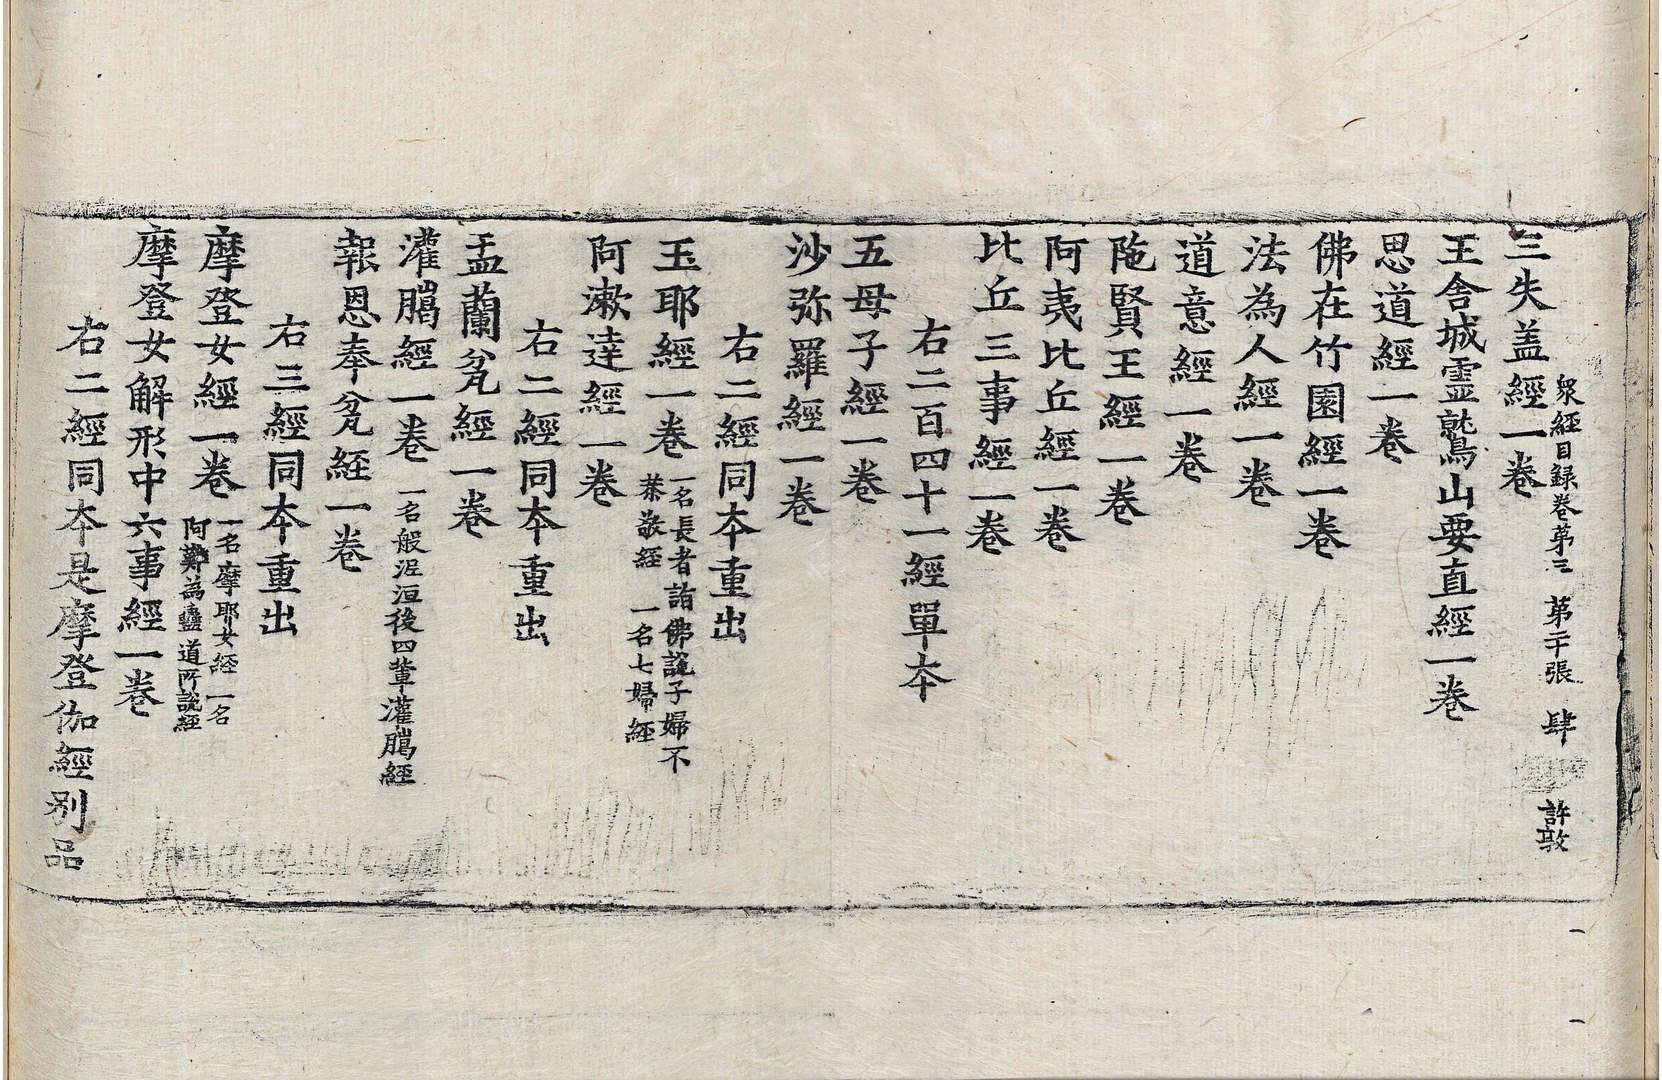 衆經目録卷第三 第二十張 肆 許敦
三失盖經一卷
王舍城霊鷲山要直經一卷
思道經一卷
佛在竹園經一卷
法為人經一卷
道意經一卷
陁賢王經一卷
阿夷比丘經一卷
比丘三事經一卷
右二百四十一經單夲
五母子經一卷
沙弥羅經一卷
右二經同夲重出
玉耶經一卷 一名長者詣佛説子婦不
恭敬經 一名七婦經
阿漱達經一卷
右二經同夲重出
盂蘭瓫經一卷
灌臈經一卷 一名般泥洹後四軰灌臈經
報恩奉瓫經一卷
右三經同夲重出
摩登女經一卷 一名摩耶女經 一名
阿難為蠱道所説經
摩登女解形中六事經一卷
右二經同夲是摩登伽經别品